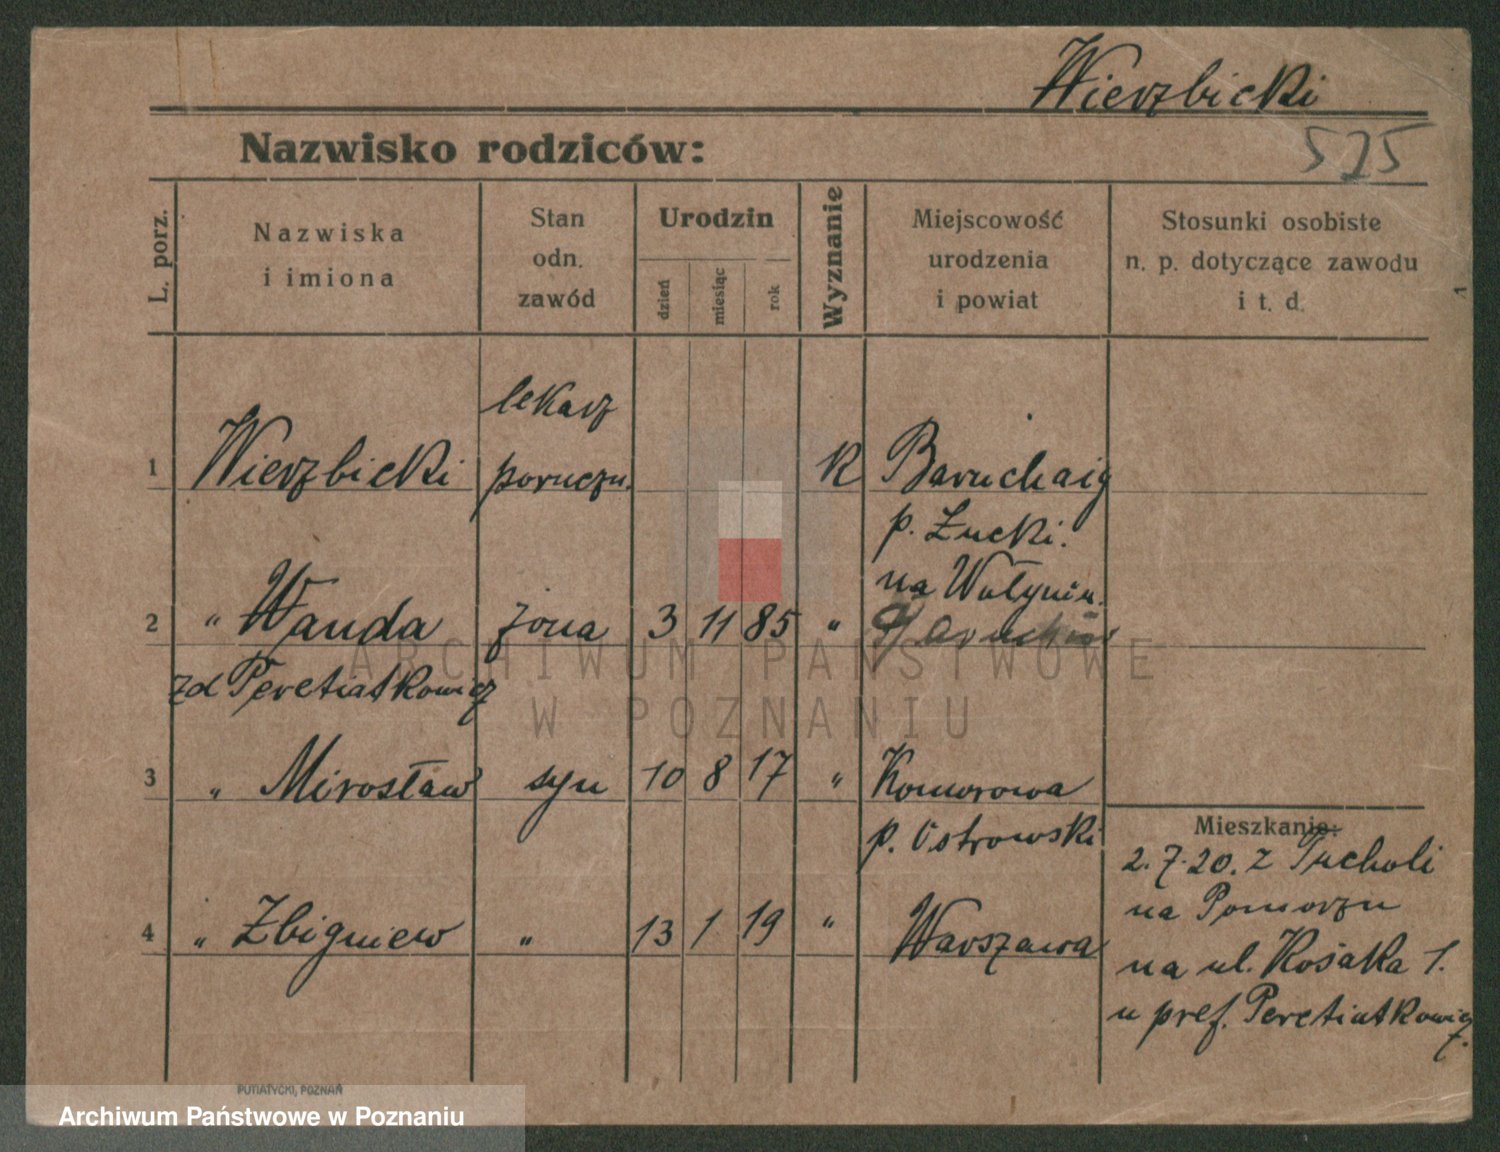 Wierzbicki
Nazwisko rodziców:
525
L. porz.
Nazwiska
i imiona
Stan
odn.
zawód
Urodzin
dzień
miesiąc
rok
Wyznanie
Miejscowość
urodzenia
i powiat
Stosunki osobiste
n. p. dotyczące zawodu
i t. d.
lekarz
1 Wierzbicki poruczn. k
p. Łucki.
na Wołyniu.
2 " Wanda żona 3 11 85 "
zd Peretiatkowicz
3 " Mirosław syn 10 8 17 " Komorowa
p. Ostrowski
4 " Zbigniew " 13 1 19 " Warszawa
Mieszkanie:
2.7.20. z Tucholi
na Pomorzu
na ul. Kosaka 1.
u prof. Peretiatkowicz.
ARCHIWUM PAŃSTWOWE
W POZNANIU
PUTIATYCKI, POZNAŃ
Archiwum Państwowe w Poznaniu